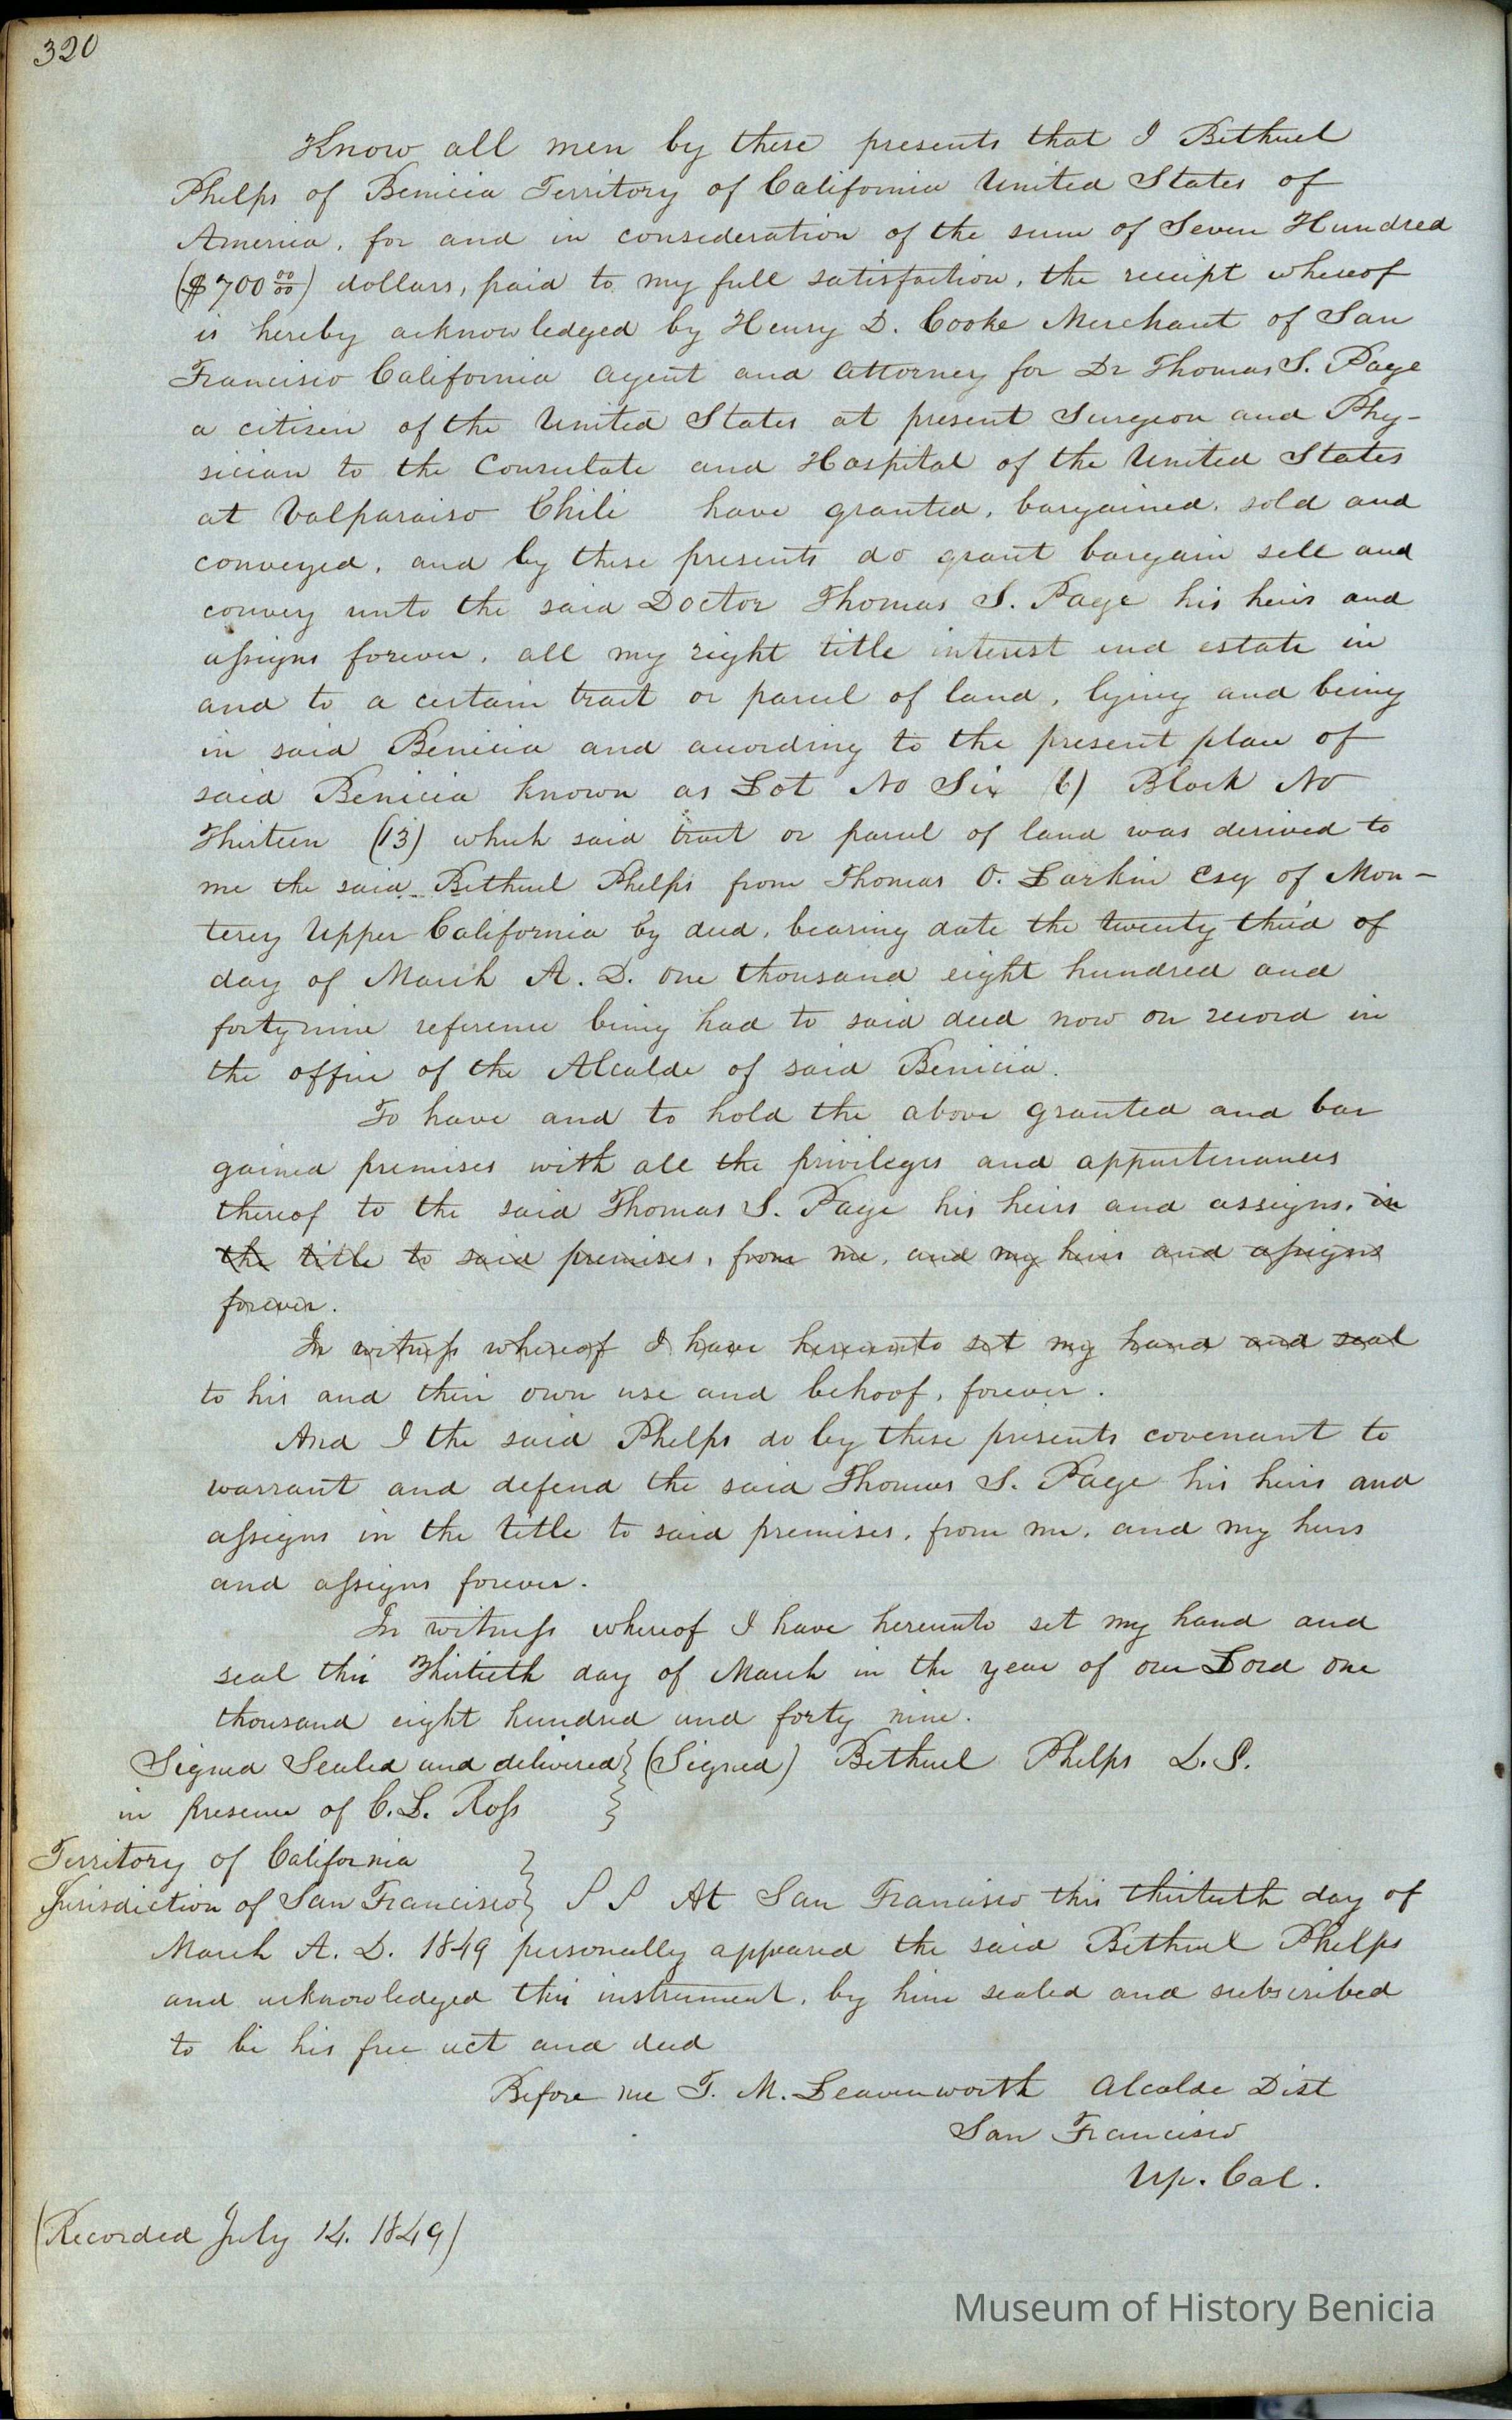 320
Know all men by these presents that I Bethuel
Phelps of Benicia Territory of California United States of
America, for and in consideration of the sum of Seven Hundred
($700 00/00) dollars, paid to my full satisfaction, the receipt whereof
is hereby acknowledged by Henry D. Cooke Merchant of San
Francisco California Agent and Attorney for Dr Thomas S. Page
a citisen of the United States at present Surgeon and Phy-
sician to the Consulate and Hospital of the United States
at Valparaiso Chili have granted, bargained, sold and
conveyed, and by these presents do grant bargain sell and
convey unto the said Doctor Thomas S. Page his heirs and
assigns forever, all my right title interest and estate in
and to a certain tract or parcel of land, lying and being
in said Benicia and according to the present plan of
said Benicia known as Lot No Six (6) Block No
Thirteen (13) which said tract or parcel of land was derived to
me the said Bethuel Phelps from Thomas O. Larkin Esq of Mon-
terey Upper California by deed, bearing date the twenty third of
day of March A. D. one thousand eight hundred and
forty nine reference being had to said deed now on record in
the office of the Alcalde of said Benicia.
To have and to hold the above granted and bar
gained premises with all the privileges and appurtenances
thereof to the said Thomas S. Page his heirs and assigns, in
the title to said premises, from me, and my heirs and assigns
forever.
In witness whereof I have hereunto set my hand and seal
to his and their own use and behoof, forever.
And I the said Phelps do by these presents covenant to
warrant and defend the said Thomas S. Page his heirs and
assigns in the title to said premises, from me, and my heirs
and assigns forever.
In witness whereof I have hereunto set my hand and
seal this Thirtieth day of March in the year of our Lord one
thousand eight hundred and forty nine.
Signed Sealed and delivered } (Signed) Bethuel Phelps L.S.
in presence of C. L. Ross }
Territory of California }
Jurisdiction of San Francisco } S S At San Francisco this thirtieth day of
March A. D. 1849 personally appeared the said Bethuel Phelps
and acknowledged this instrument, by him sealed and subscribed
to be his free act and deed
Before me T. M. Leavenworth Alcalde Dist
San Francisco
Up. Cal.
(Recorded July 14. 1849)
Museum of History Benicia